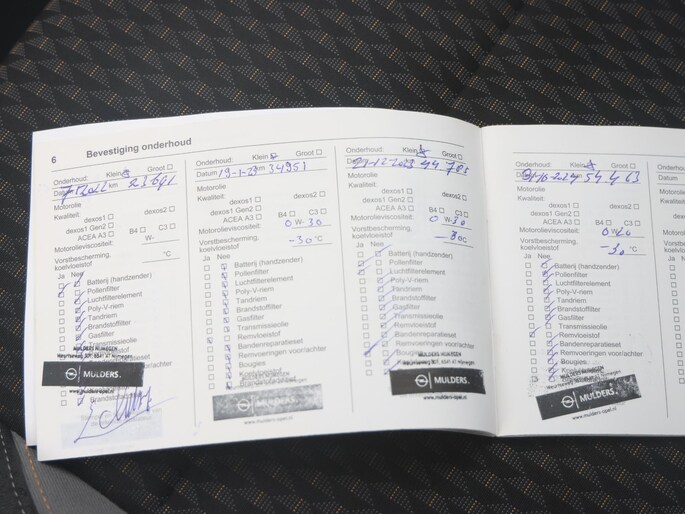 6 Bevestiging onderhoud
Onderhoud: Klein Groot
Datum km 23 691
Motorolie
Kwaliteit:
dexos1 dexos2
dexos1 Gen2
ACEA A3 B4 C3
Motorolieviscositeit: W-
Vorstbescherming.
koelvloeistof °C
Ja Nee
Batterij (handzender)
Pollenfilter
Luchtfilterelement
Poly-V-riem
Tandriem
Brandstoffilter
Gasfilter
Transmissieolie
Remvloeistof
Bandenreparatieset
Remvoeringen voor/achter
MULDERS NIJMEGEN
OPEL MULDERS.
www.mulders-opel.nl
Onderhoud: Klein Groot
Datum 19-1-23 km 34951
Motorolie
Kwaliteit:
dexos1 dexos2
dexos1 Gen2
ACEA A3 B4 C3
Motorolieviscositeit: 0 W- 30
Vorstbescherming.
koelvloeistof -30 °C
Ja Nee
Batterij (handzender)
Pollenfilter
Luchtfilterelement
Poly-V-riem
Tandriem
Brandstoffilter
Gasfilter
Transmissieolie
Remvloeistof
Bandenreparatieset
Remvoeringen voor/achter
Bougies
MULDERS.
www.mulders-opel.nl
Onderhoud: Klein Groot
21-12-2023 44 703
Motorolie
Kwaliteit:
dexos1 dexos2
dexos1 Gen2
ACEA A3 B4 C3
Motorolieviscositeit: 0 W-30
Vorstbescherming.
koelvloeistof °C
Ja Nee
Batterij (handzender)
Pollenfilter
Luchtfilterelement
Poly-V-riem
Tandriem
Brandstoffilter
Gasfilter
Transmissieolie
Remvloeistof
Bandenreparatieset
Remvoeringen voor/achter
Bougies
MULDERS NIJMEGEN
MULDERS.
www.mulders-opel.nl
Onderhoud: Klein Groot
54 463
Motorolie
Kwaliteit:
dexos1 dexos2
dexos1 Gen2
ACEA A3 B4 C3
Motorolieviscositeit:
Vorstbescherming.
koelvloeistof -30 °C
Ja Nee
Batterij (handzender)
Pollenfilter
Luchtfilterelement
Poly-V-riem
Tandriem
Brandstoffilter
Gasfilter
Transmissieolie
Remvloeistof
Bandenreparatieset
Remvoeringen voor/achter
Bougies
MULDERS.
www.mulders-opel.nl
Onderhoud:
Datum
Motorolie
Kwaliteit: